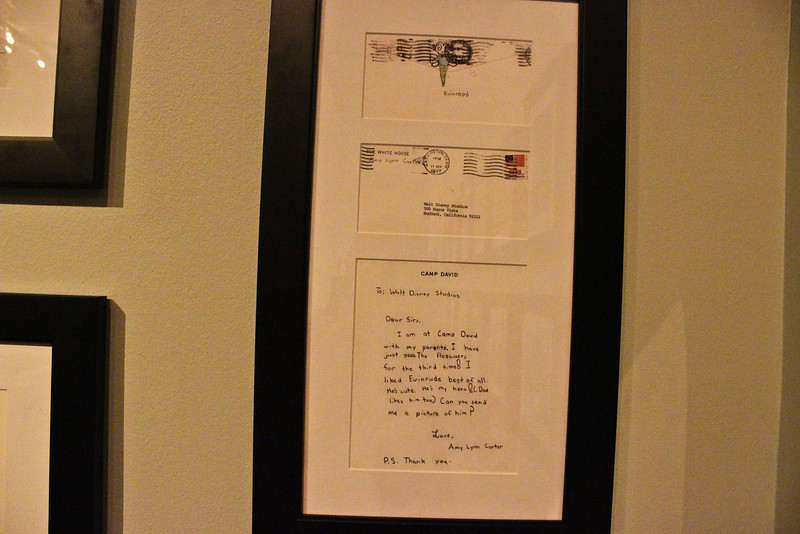 Evinrood
THE WHITE HOUSE
Amy Lynn Carter
1977
Walt Disney Studios
500 Buena Vista
Burbank, California 91521
CAMP DAVID
To: Walt Disney Studios
Dear Sirs,
I am at Camp David
with my parents. I have
just seen The Rescuers
for the third time! I
liked Evinrude best of all.
He's cute. He's my hero! (Dad
likes him too) Can you send
me a picture of him?
Love,
Amy Lynn Carter
P.S. Thank you.